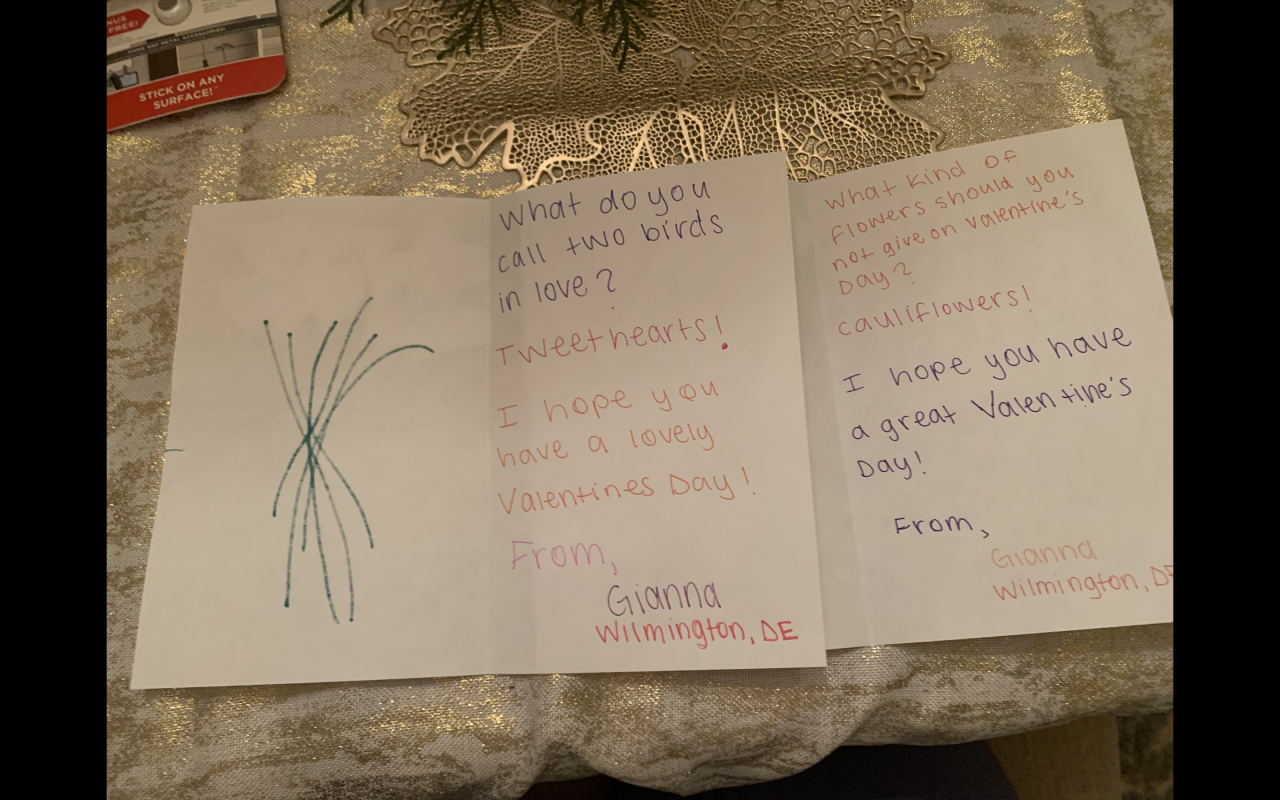 FREE!
STICK ON ANY
SURFACE!
What do you
call two birds
in love?
Tweethearts!
I hope you
have a lovely
Valentines Day!
From,
Gianna
Wilmington, DE
What kind of
flowers should you
not give on Valentine's
Day?
cauliflowers!
I hope you have
a great Valentine's
Day!
From,
Gianna
Wilmington, DE